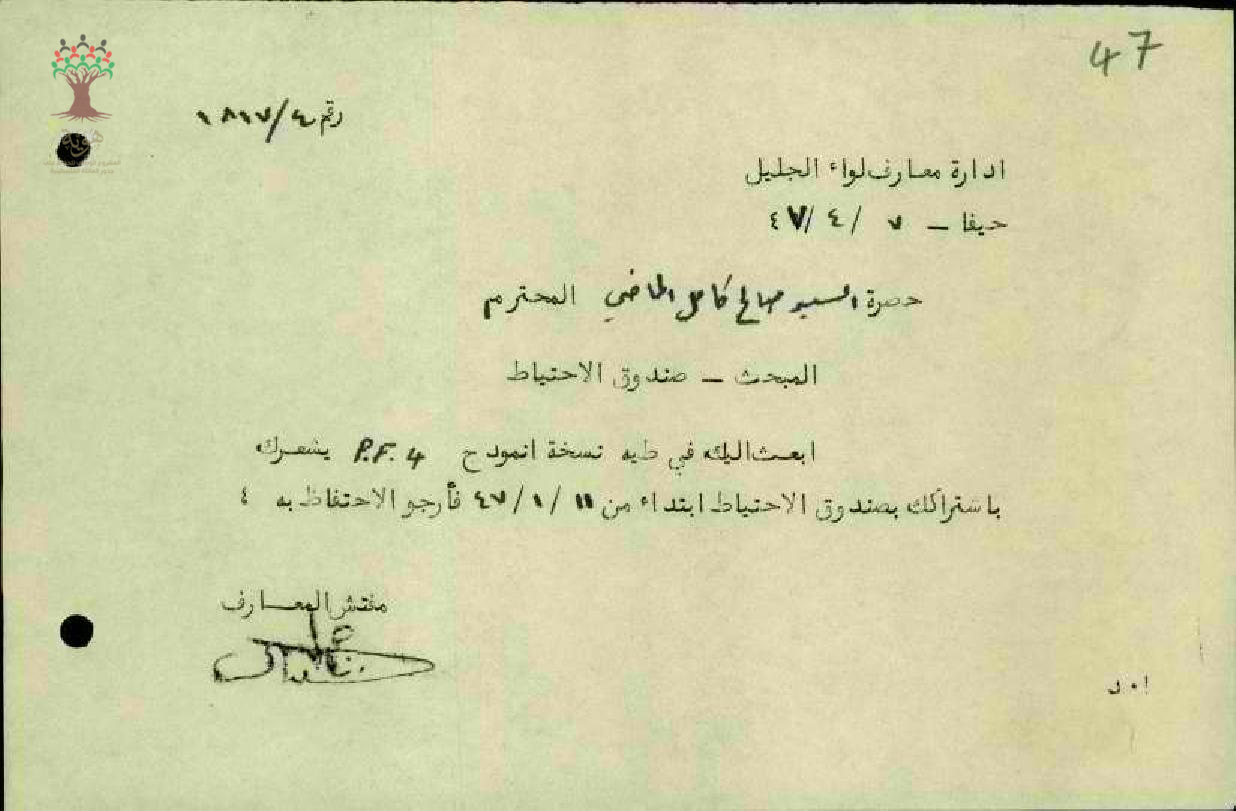 47
رقم ١٨١٧/٤
ادارة معارف لواء الجليل
حيفا – ٧ /٤ /٤٧
حضرة السيد صالح كامل الماضي المحترم
المبحث – صندوق الاحتياط
ابعث اليك في طيه نسخة انموذج P.F. 4 يشعرك
باشتراكك بصندوق الاحتياط ابتداء من ١١ /١ /٤٧ فأرجو الاحتفاظ به ٤
مفتش المعارف
ا٠د
هوية